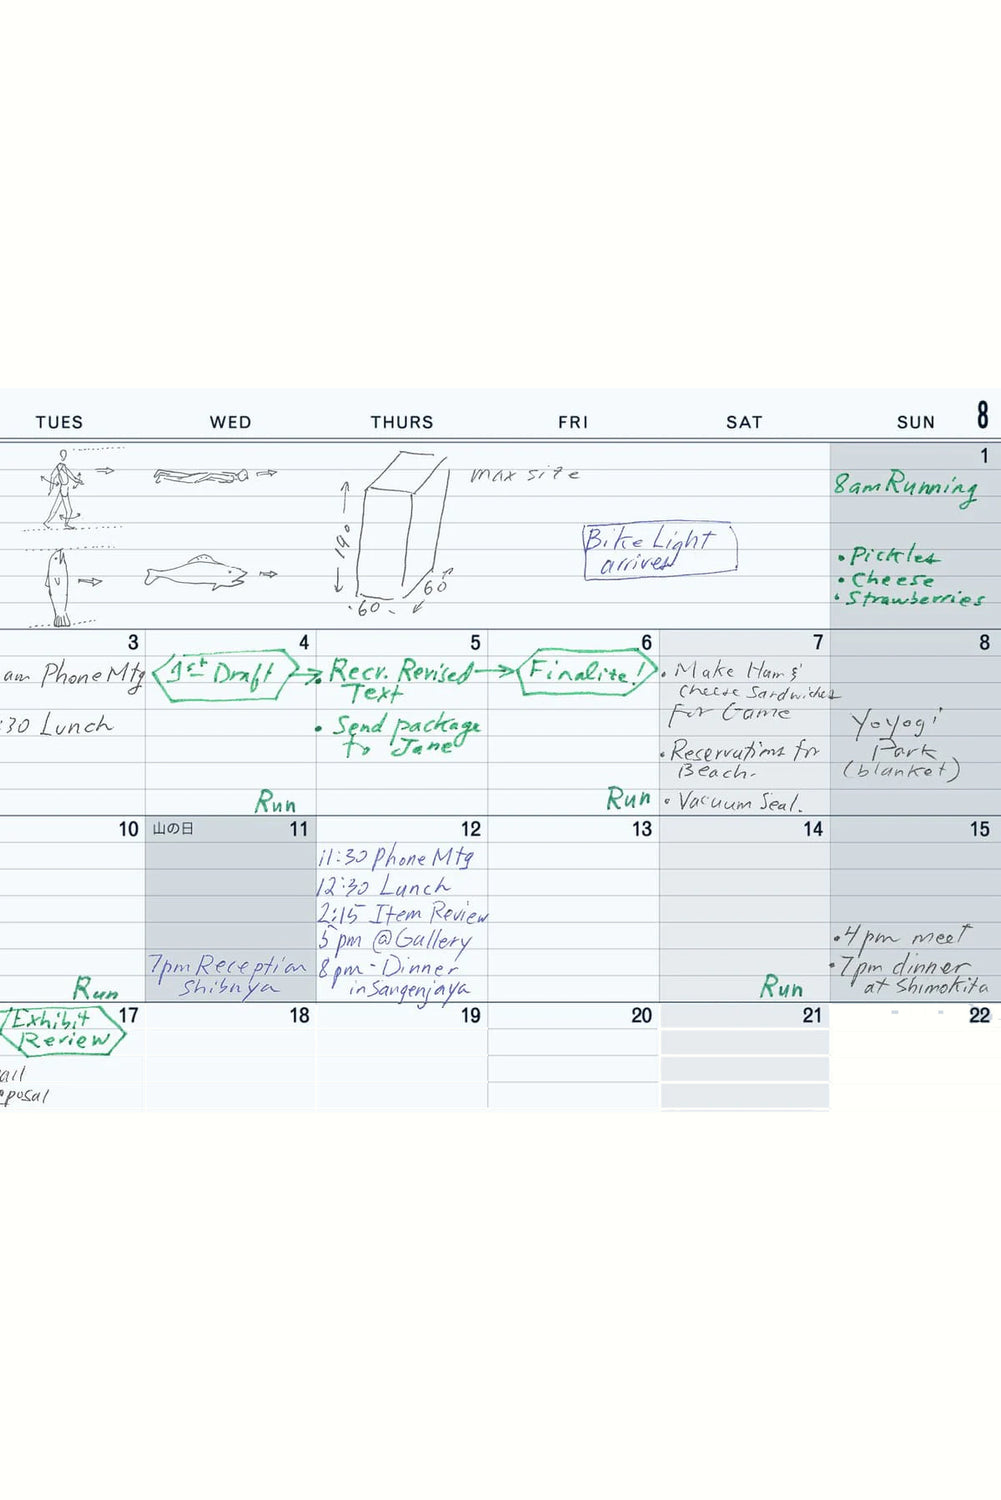 TUES WED THURS FRI SAT SUN 8
1
max size
190
60
60
Bike Light
arrives
8am Running
• Pickles
• Cheese
• Strawberries
3
am Phone Mtg
:30 Lunch
4
1st Draft
Run
5
• Recv. Revised
Text
• Send package
to Jane
6
Finalize!
Run
7
• Make Ham &
Cheese Sandwiches
For Game
• Reservations for
Beach.
• Vacuum Seal.
8
Yoyogi
Park
(blanket)
10
Run
山の日 11
7pm Reception
Shibuya
12
11:30 Phone Mtg
12:30 Lunch
2:15 Item Review
5pm @Gallery
8pm - Dinner
in Sangenjaya
13
14
Run
15
• 4pm meet
• 7pm dinner
at Shimokita
17
Exhibit
Review
18
19
20
21
22